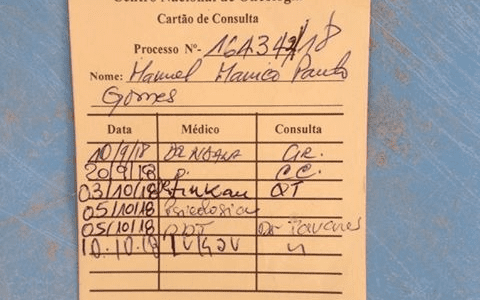 Centro Nacional de Oncologia
Cartão de Consulta
Processo Nº-
Nome: Manuel Manico Paulo
Gomes
Data Médico Consulta
10/9/18 DR NDALA
20/9/18 C.C.
03/10/18 QT
05/10/18 Psicologia
05/10/18 Dr Tavares
10.10.18